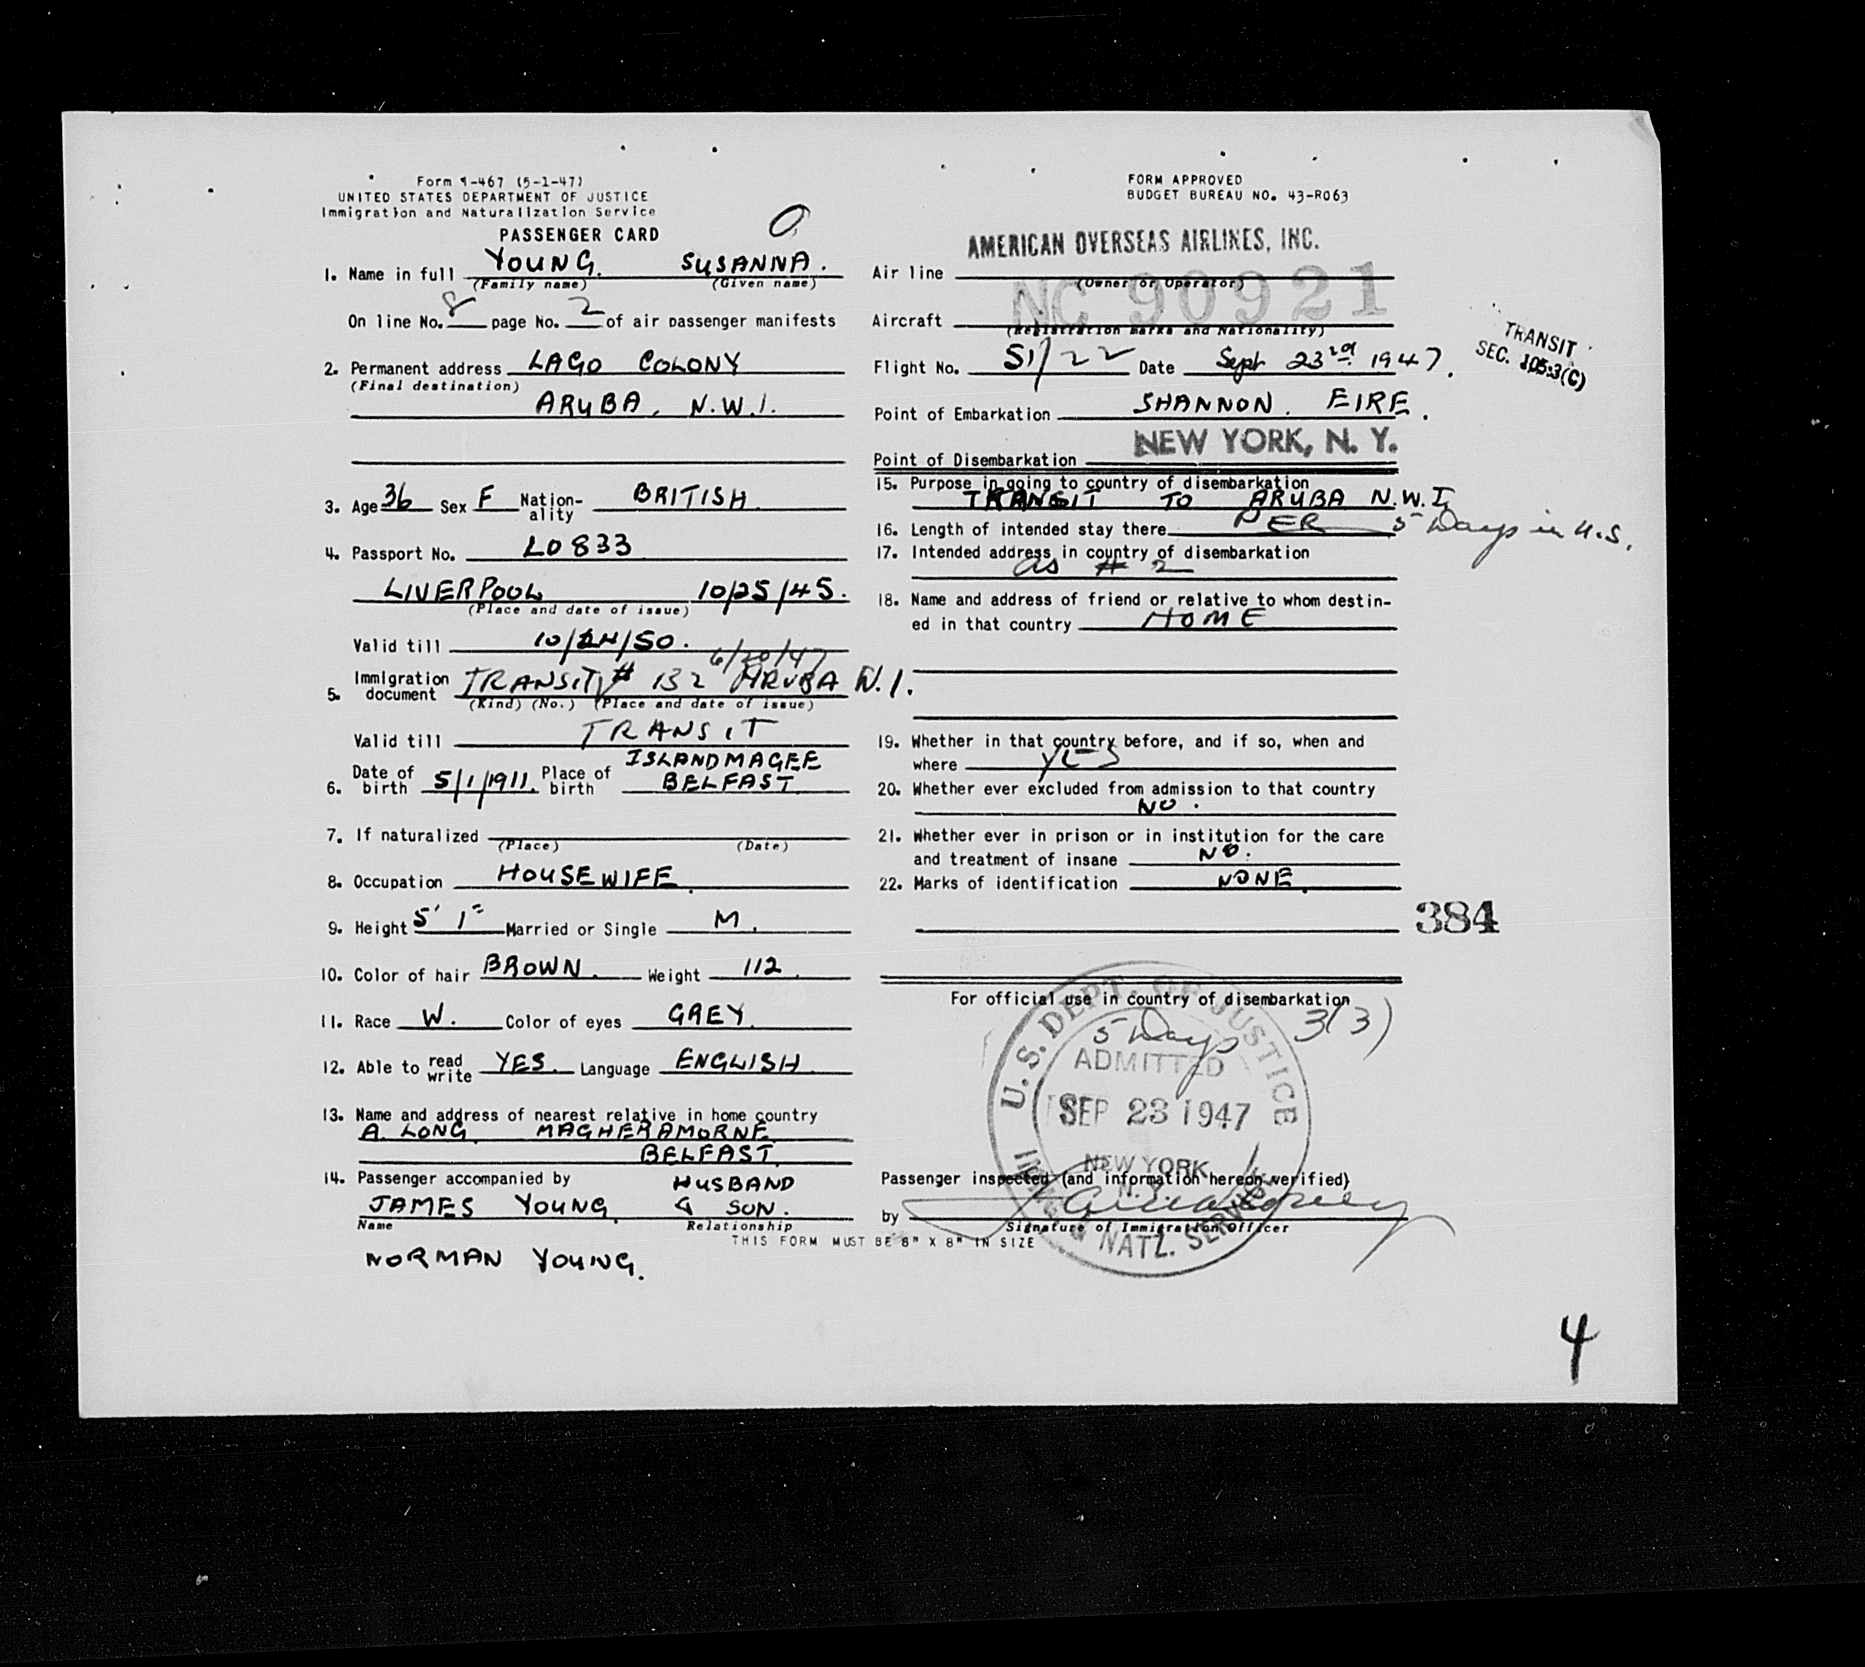 Form I-467 (5-1-47)
UNITED STATES DEPARTMENT OF JUSTICE
Immigration and Naturalization Service
PASSENGER CARD
1. Name in full YOUNG. SUSANNA.
(Family name) (Given name)
On line No. 8 page No. 2 of air passenger manifests
2. Permanent address LAGO COLONY
(Final destination)
ARUBA, N.W.I.
3. Age 36 Sex F Nation-ality BRITISH
4. Passport No. LO833
LIVERPOOL 10/25/45.
(Place and date of issue)
Valid till 10/24/50.
6/20/47
5. Immigration document TRANSIT # 132 ARUBA W.I.
(Kind) (No.) (Place and date of issue)
Valid till TRANSIT
ISLANDMAGEE
6. Date of birth 5/1/1911. Place of birth BELFAST
7. If naturalized
(Place) (Date)
8. Occupation HOUSEWIFE.
9. Height 5' 1" Married or Single M.
10. Color of hair BROWN. Weight 112.
11. Race W. Color of eyes GREY.
12. Able to read write YES. Language ENGLISH
13. Name and address of nearest relative in home country
A. LONG MAGHERAMORNE
BELFAST.
14. Passenger accompanied by HUSBAND
JAMES YOUNG & SON.
Name Relationship
THIS FORM MUST BE 8" X 8" IN SIZE
NORMAN YOUNG.
FORM APPROVED
BUDGET BUREAU NO. 43-R063
AMERICAN OVERSEAS AIRLINES, INC.
Air line
(Owner or Operator)
NC 90921
Aircraft
(Registration marks and Nationality)
Flight No. S1/22 Date Sept 23rd 1947.
Point of Embarkation SHANNON. EIRE.
NEW YORK, N. Y.
Point of Disembarkation
15. Purpose in going to country of disembarkation
TRANSIT TO ARUBA N.W.I.
16. Length of intended stay there PER 5 Days in U.S.
17. Intended address in country of disembarkation
as # 2
18. Name and address of friend or relative to whom destin-
ed in that country HOME
19. Whether in that country before, and if so, when and
where YES
20. Whether ever excluded from admission to that country
NO.
21. Whether ever in prison or in institution for the care
and treatment of insane NO.
22. Marks of identification NONE.
384
For official use in country of disembarkation
5 Days 3(3)
U.S. DEPT. OF JUSTICE
ADMITTED
SEP 23 1947
NEW YORK
N.Y.
IMM. & NATZ. SERVICE
Passenger inspected (and information hereon verified)
by
Signature of Immigration Officer
TRANSIT
SEC. 105.3(C)
4